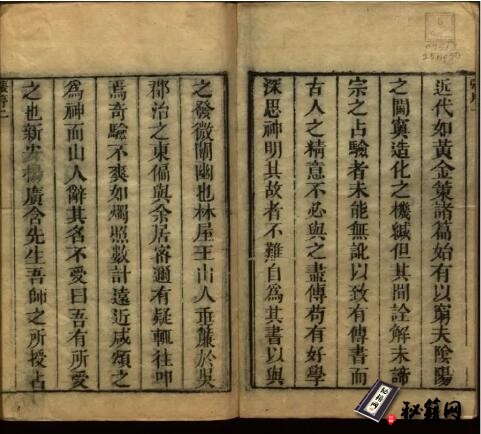 近代如黃金策諸篇始有以窮夫陰陽
之閫寔造化之機緘但其間詮解未諦
宗之占驗者未能無訛以致有傳書而
古人之精意不必與之盡傳苟有好學
深思神明其故者不難自為其書以與
之發微闡幽也林屋王山人垂簾於吳
郡治之東偏與余居密邇有疑輒往叩
焉奇驗不爽如燭照數計遠近咸頌之
為神而山人辭其名不受曰吾有所受
之也新安楊廣含先生吾師之所授占
秘籍网